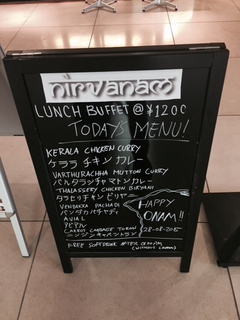 nirvanam
LUNCH BUFFET @ ¥1200
TODAYS MENU!
KERALA CHICKEN CURRY
ケララ チキン カレー
VARTHURACHHA MUTTON CURRY
マトンカレー
THALASSERY CHICKEN BIRYANI
チキン ビリヤニ
VENDAKKA PACHADI
AVIAL
アビヤル
CARROT CABBAGE TORAN
ニンジンキャベツトラン
HAPPY
ONAM!!
28-08-2015
FREE SOFTDRINK AFTER